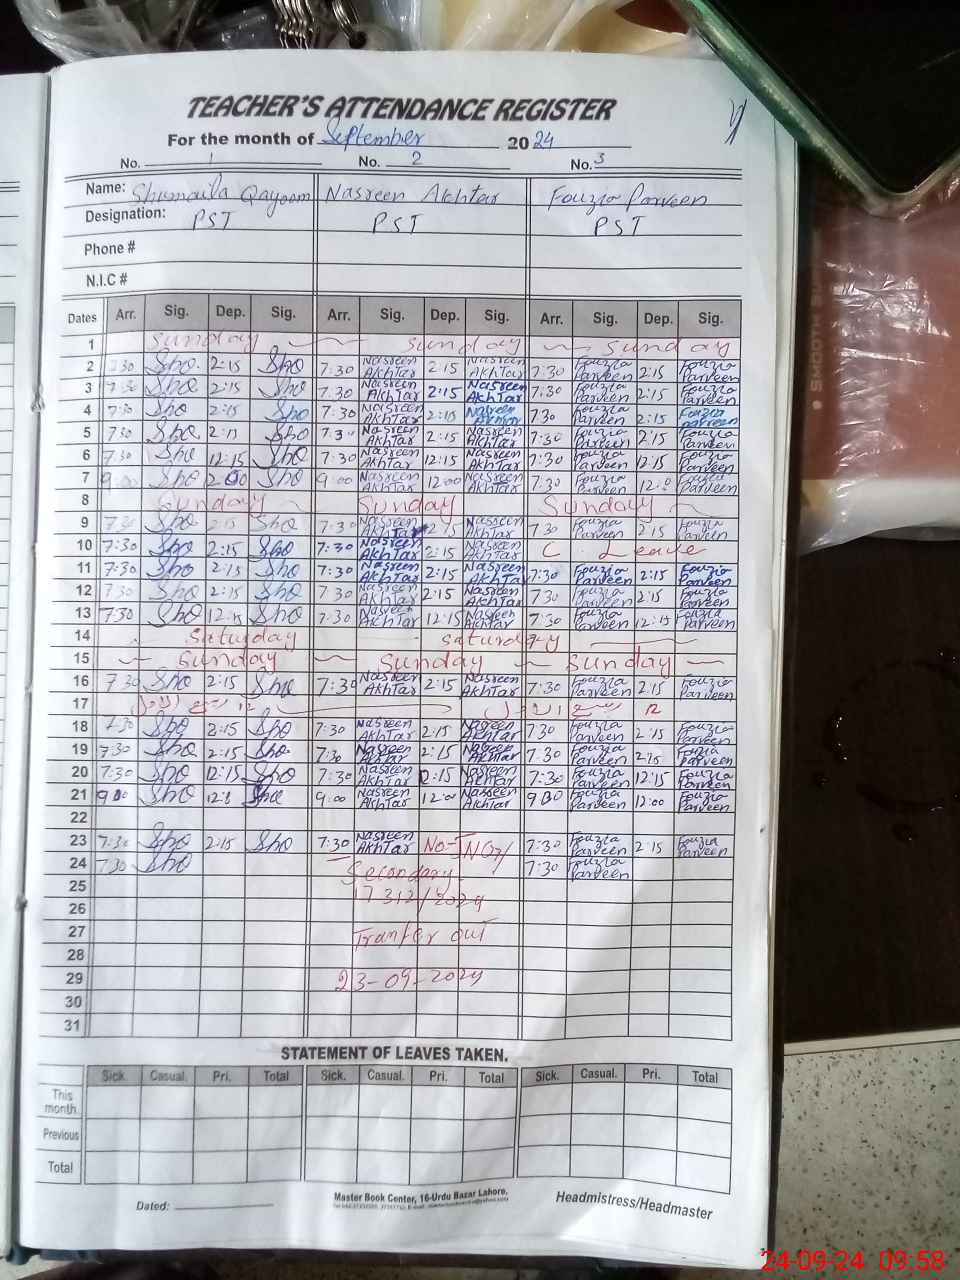 TEACHER'S ATTENDANCE REGISTER
For the month of September 2024
No. 1 No. 2 No. 3
Name: Shumaila Qayoom Nasreen Akhtar Fouzia Parveen
Designation: PST PST PST
Phone #
N.I.C #
Dates Arr. Sig. Dep. Sig. Arr. Sig. Dep. Sig. Arr. Sig. Dep. Sig.
1 Sunday Sunday Sunday
2 7:30 Sho 2:15 Sho 7:30 Nasreen Akhtar 2:15 Nasreen Akhtar 7:30 Fouzia Parveen 2:15 Fouzia Parveen
3 7:30 Sho 2:15 Sho 7:30 Nasreen Akhtar 2:15 Nasreen Akhtar 7:30 Fouzia Parveen 2:15 Fouzia Parveen
4 7:30 Sho 2:15 Sho 7:30 Nasreen Akhtar 2:15 Nasreen Akhtar 730 Fouzia Parveen 2:15 Fouzia Parveen
5 730 Sho 2:15 Sho 7:30 Nasreen Akhtar 2:15 Nasreen Akhtar 7:30 Fouzia Parveen 2:15 Fouzia Parveen
6 7:30 Sho 12:15 Sho 7:30 Nasreen Akhtar 12:15 Nasreen Akhtar 7:30 Fouzia Parveen 12:15 Fouzia Parveen
7 9:00 Sho Sho 9:00 Nasreen Akhtar 12:00 Nasreen Akhtar 7:30 Fouzia Parveen 12:0 Fouzia Parveen
8 Sunday Sunday Sunday
9 7:30 Sho 2:15 Sho 7:30 Nasreen 2:15 Nasreen Akhtar 730 Fouzia Parveen 2:15 Fouzia Parveen
10 7:30 Sho 2:15 Sho 7:30 Nasreen Akhtar 2:15 Nasreen Akhtar C. Leave
11 7:30 Sho 2:15 Sho 7:30 Nasreen Akhtar 2:15 Nasreen Akhtar 7:30 Fouzia Parveen 2:15 Fouzia Parveen
12 7:30 Sho 2:15 Sho 7:30 Nasreen Akhtar 2:15 Nasreen Akhtar 7:30 Fouzia Parveen 2:15 Fouzia Parveen
13 7:30 Sho 12:15 Sho 7:30 Nasreen Akhtar 12:15 Nasreen Akhtar 7:30 Fouzia Parveen 12:15 Fouzia Parveen
14 Saturday Saturday
15 Sunday Sunday Sunday
16 7:30 Sho 2:15 Sho 7:30 Nasreen Akhtar 2:15 Nasreen Akhtar 7:30 Fouzia Parveen 2:15 Fouzia Parveen
17 ۱۲ ربیع الاول ۱۲ ربیع الاول
18 7:30 Sho 2:15 Sho 7:30 Nasreen Akhtar 2:15 Nasreen Akhtar 730 Fouzia Parveen 2:15 Fouzia Parveen
19 7:30 Sho 2:15 Sho 7:30 Nasreen Akhtar 2:15 Nasreen Akhtar 7:30 Fouzia Parveen 2:15 Fouzia Parveen
20 7:30 Sho 12:15 Sho 7:30 Nasreen Akhtar 12:15 Nasreen Akhtar 7:30 Fouzia Parveen 12:15 Fouzia Parveen
21 900 Sho Sho 9:00 Nasreen Akhtar 12:00 Nasreen Akhtar 900 Fouzia Parveen 12:00 Fouzia Parveen
22
23 7:30 Sho 2:15 Sho 7:30 Nasreen Akhtar No- 7:30 Fouzia Parveen 2:15 Fouzia Parveen
24 7:30 Sho Secondary 7:30 Fouzia Parveen
25 17312/2024
26
27 Tranfer out
28
29 23-09-2024
30
31
STATEMENT OF LEAVES TAKEN.
Sick. Casual. Pri. Total Sick. Casual. Pri. Total Sick. Casual. Pri. Total
This month.
Previous
Total
Dated:
Master Book Center, 16-Urdu Bazar Lahore.
Headmistress/Headmaster
24-09-24 09:58